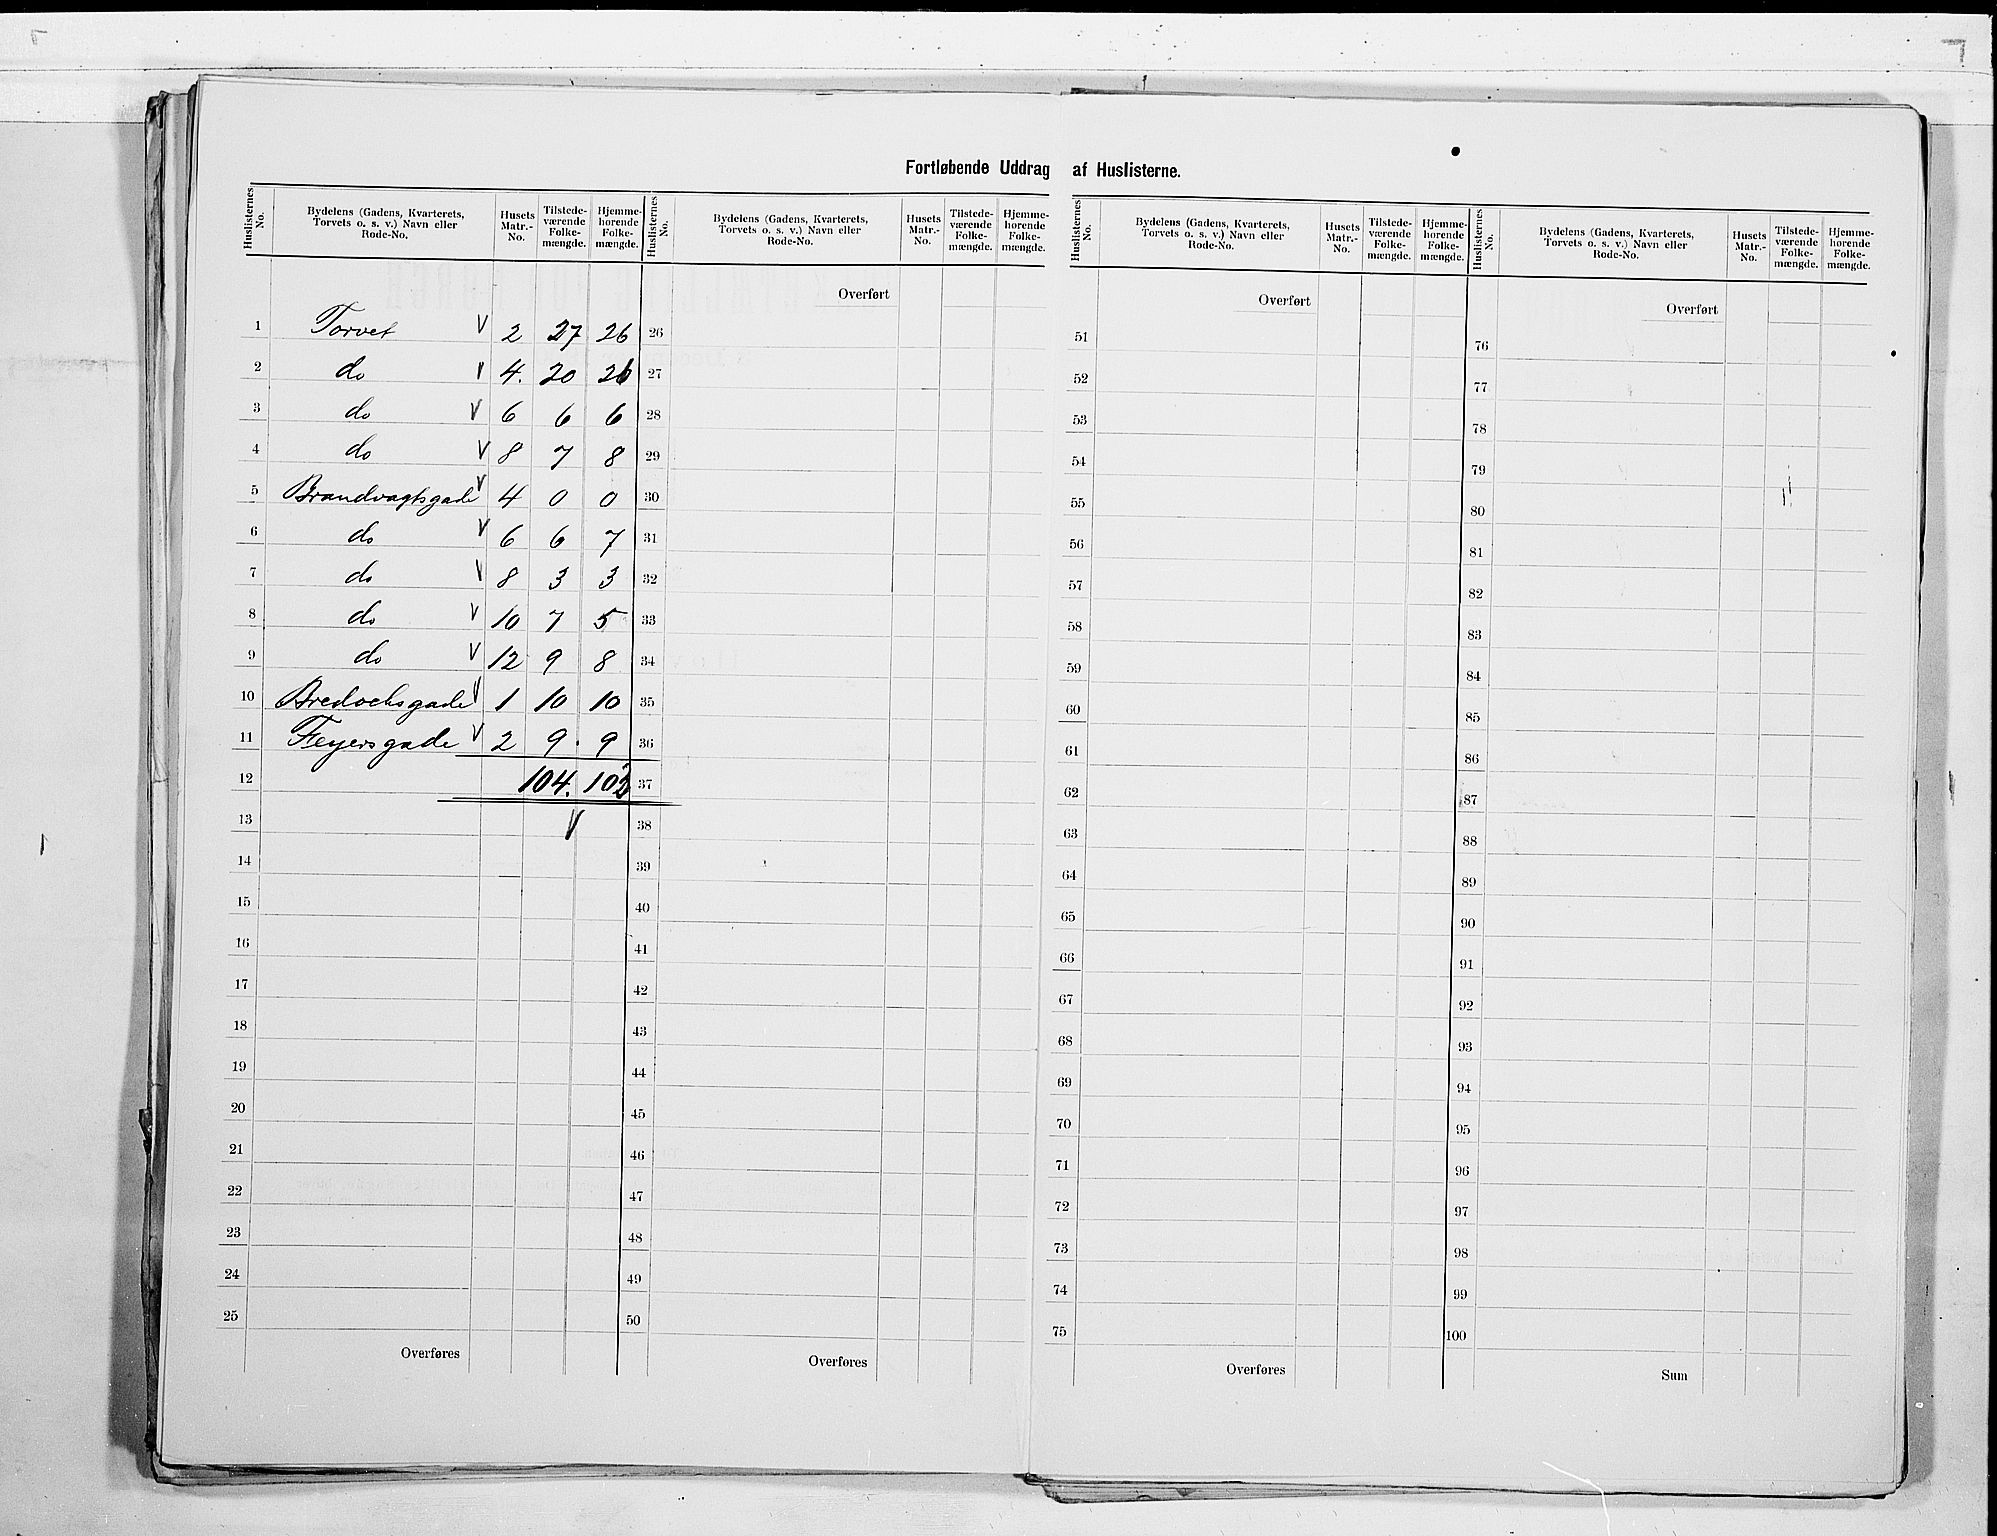 Fortløbende Uddrag af Huslisterne.
Huslisternes No. Bydelens (Gadens, Kvarterets, Torvets o. s. v.) Navn eller Rode-No. Husets Matr.-No. Tilstede-værende Folke-mængde. Hjemme-hørende Folke-mængde.
Huslisternes No. Bydelens (Gadens, Kvarterets, Torvets o. s. v.) Navn eller Rode-No. Husets Matr.-No. Tilstede-værende Folke-mængde. Hjemme-hørende Folke-mængde.
Huslisternes No. Bydelens (Gadens, Kvarterets, Torvets o. s. v.) Navn eller Rode-No. Husets Matr.-No. Tilstede-værende Folke-mængde. Hjemme-hørende Folke-mængde.
Huslisternes No. Bydelens (Gadens, Kvarterets, Torvets o. s. v.) Navn eller Rode-No. Husets Matr.-No. Tilstede-værende Folke-mængde. Hjemme-hørende Folke-mængde.
1 Torvet V 2 27 26
2 do V 4. 20 20
3 do V 6 6 6
4 do V 8 7 8
5 Brandvagtsgade V 4 0 0
6 do V 6 6 7
7 do V 8 3 3
8 do V 10 7 5
9 do V 12 9 8
10 Bredochsgade V 1 10 10
11 Fleyersgade V 2 9 9
12 104. 102
13 V
14
15
16
17
18
19
20
21
22
23
24
25
Overføres
Overført
26
27
28
29
30
31
32
33
34
35
36
37
38
39
40
41
42
43
44
45
46
47
48
49
50
Overføres
Overført
51
52
53
54
55
56
57
58
59
60
61
62
63
64
65
66
67
68
69
70
71
72
73
74
75
Overføres
Overført
76
77
78
79
80
81
82
83
84
85
86
87
88
89
90
91
92
93
94
95
96
97
98
99
100
Sum